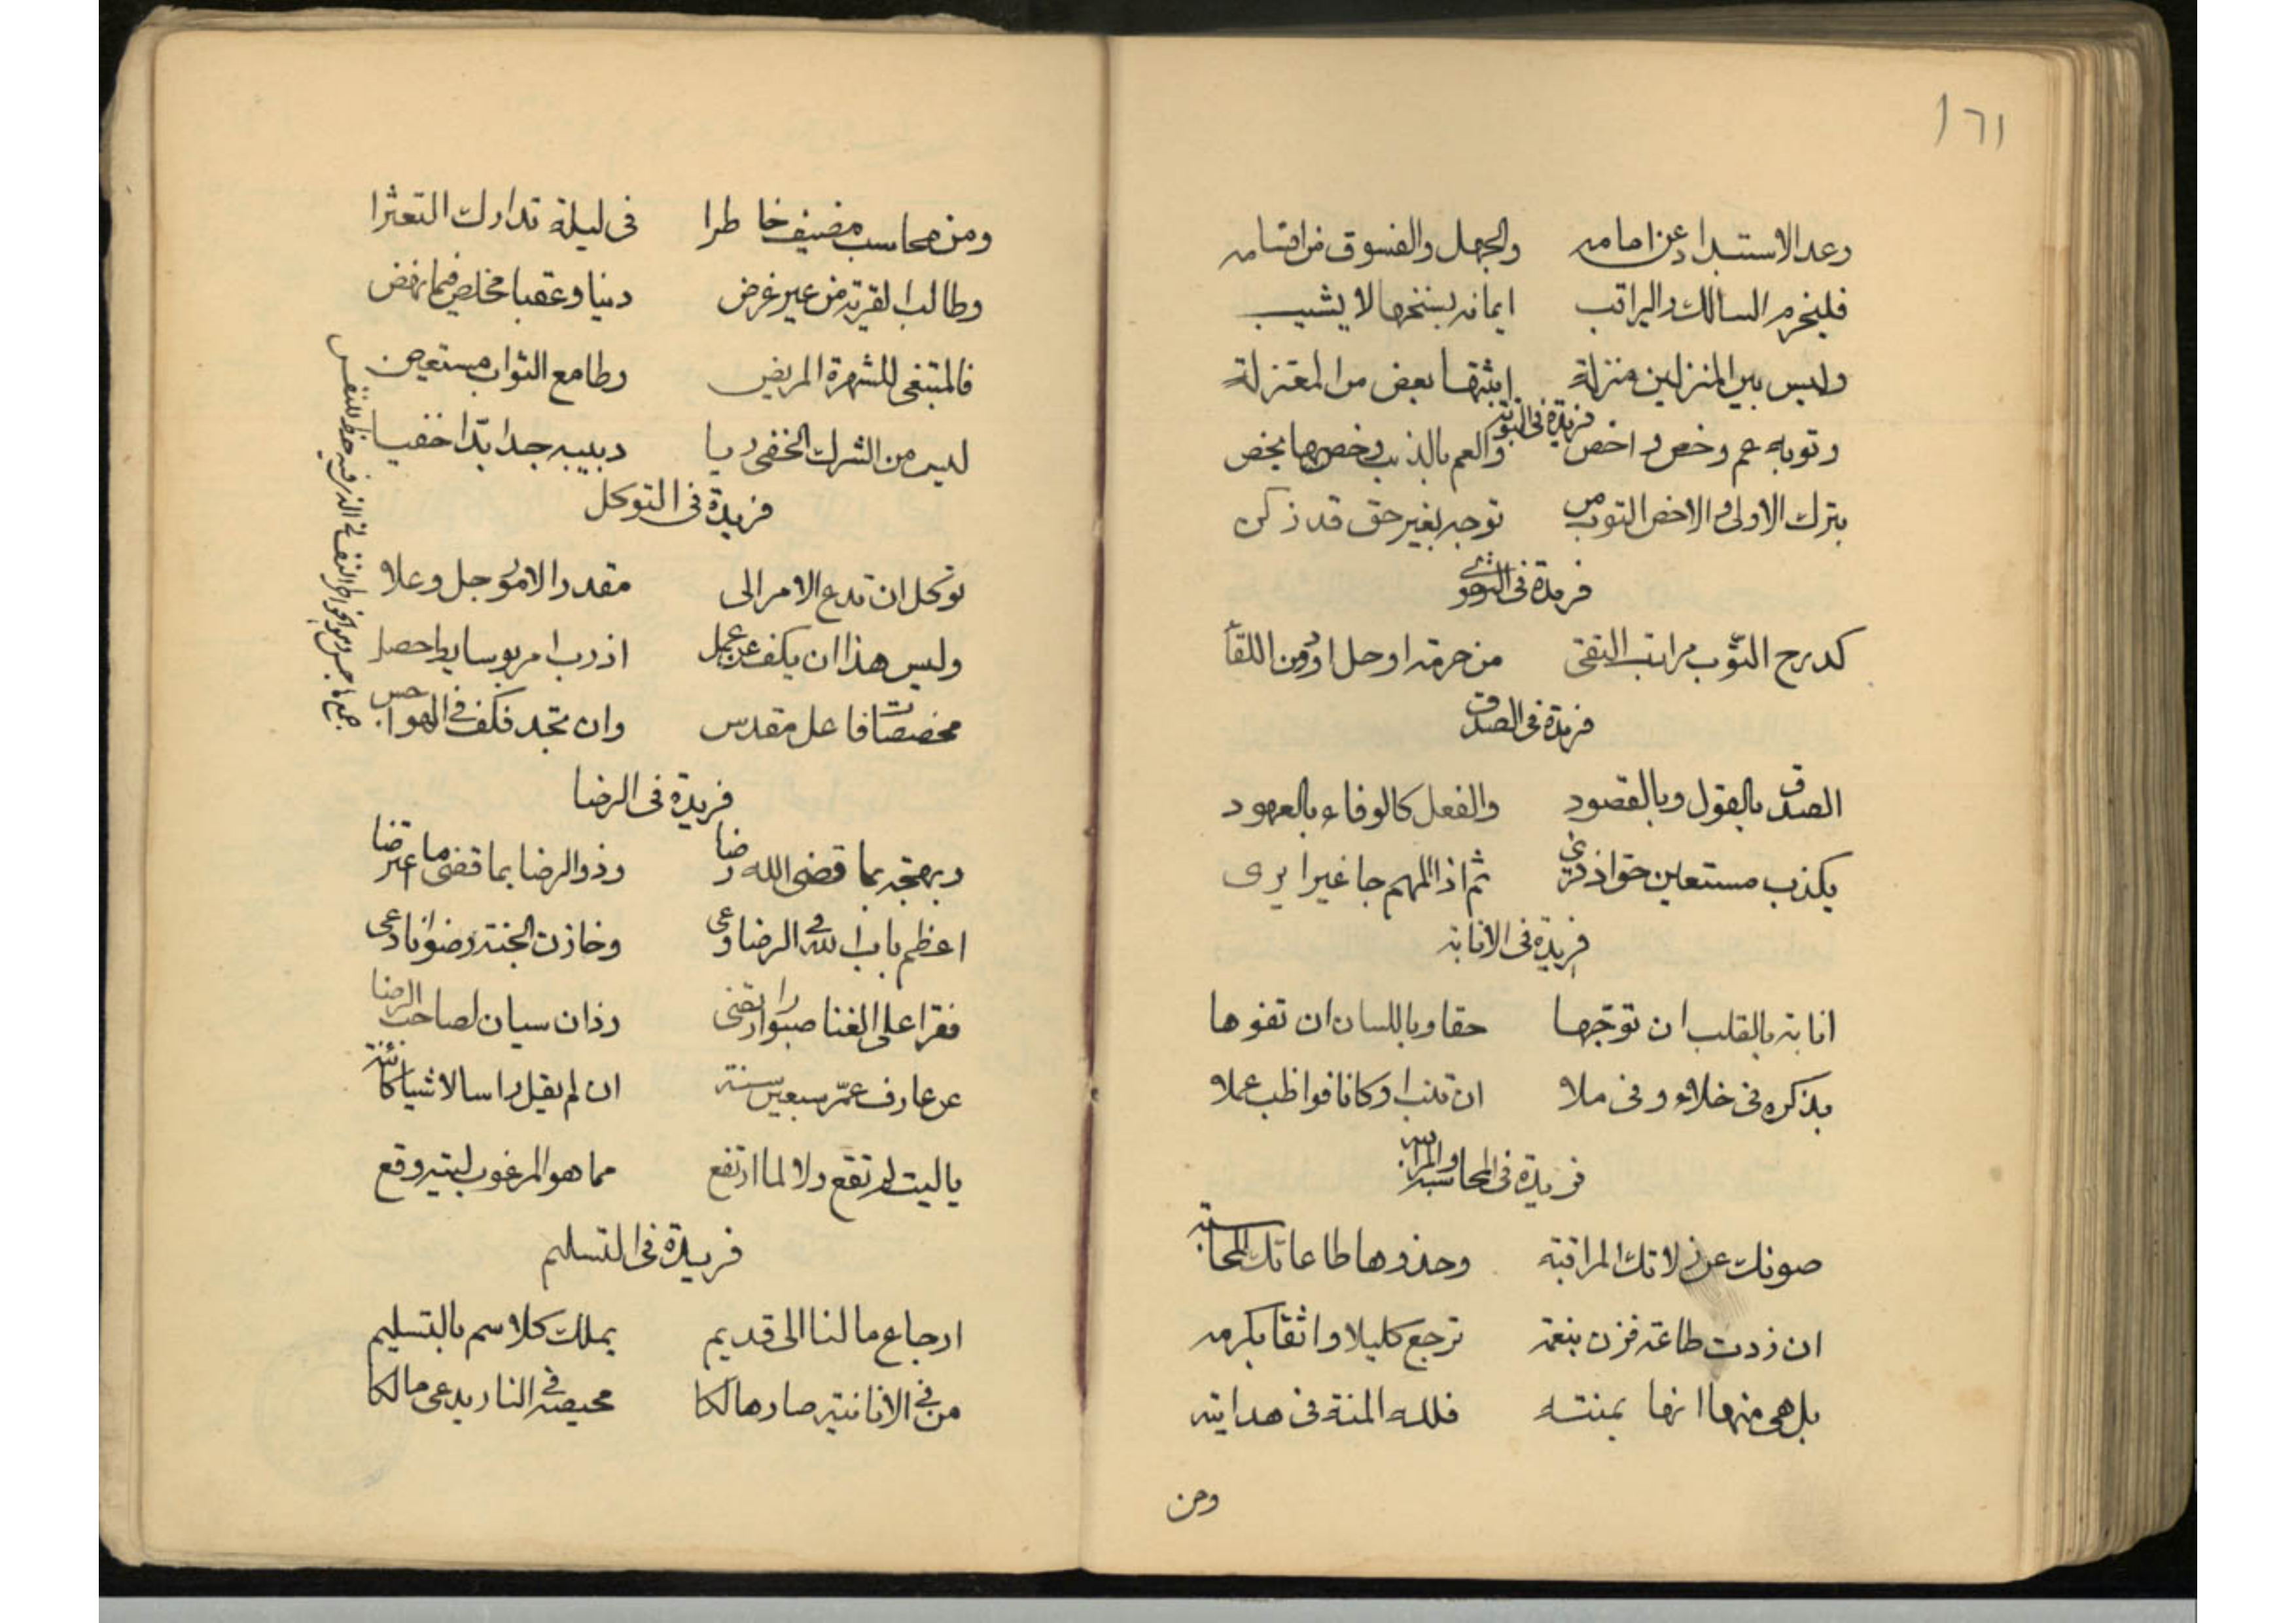 ١٦١
وعد الاستبدا دعن امامه والجهل والفسوق من اقسامه
فليخرم السالك والمراتب ايمانه بسنخها لا يشيب
وليس بين المنزلين منزلة اثبتها بعض من المعتزلة
فريدة فى التوبة
وتوبة عم وخص واخص والعم بالذنب وخصها يخص
بترك الاولى والاخص التوب من توجه بغير حق قد زكن
فريدة فى التقوى
كدرج التوب مراتب التقى من حرمة او حل او دون اللقا
فريدة فى الصدق
الصدق بالقول وبالقصود والفعل كالوفاء بالعهود
يكذب مستعين حق اذ ثم اذا المهم جا غيرا يرى
فريدة فى الانابة
انابة بالقلب ان توجها حقا وباللسان ان تفوها
بذكره فى خلاء وفى ملا ان تنب اركانا فواظب عملا
فريدة فى المحاسبة والمراقبة
صونك عن زلاتك المراقبة وحذوها طاعاتك المحاسبة
ان زدت طاعة فزن بنعمه ترجع كليلا واثقا بكرمه
بل هى منها انها بمنته فلله المنة فى هدايته
ومن
ومن محاسب مضيف خا طرا فى ليلة تدارك التعثرا
وطالب القربة من غير غرض دنيا وعقبا مخلص فيما نهض
فالمبتغى للشهرة المريض وطامع الثواب مستعيض
ليس من الشرك الخفى ريا دبيبه جدا بدا خفيا
فريدة فى التوكل
توكل ان تدع الامر الى مقدر الامور جل وعلا
وليس هذا ان يكف عن عمل اذ رب امر بوسايط حصل
مخصصات فاعل مقدس وان تجد فكف فى الهواجس
جمع هاجس وهو الخواطر النفسانى الذى فيه حظ للنفس
فريدة فى الرضا
وبهجة بما قضى الله رضا وذو الرضا بما قضى ما اعترضا
اعظم باب الله فى الرضا وعى وخازن الجنة رضوانا دعى
فقرا على الغنا صبورا ارتضى وذان سيان لصاحب الرضا
عن عارف عمر سبعين سنة ان لم يقل راسا لاشيا كائنة
يا ليت لم تقع ولا لما ارتفع مما هو المرغوب ليته وقع
فريدة فى التسليم
ارجاع ما لنا الى قديم يملك كلا سم بالتسليم
من فى الانانية صار هالكا محيصه فى النار يدعى مالكا